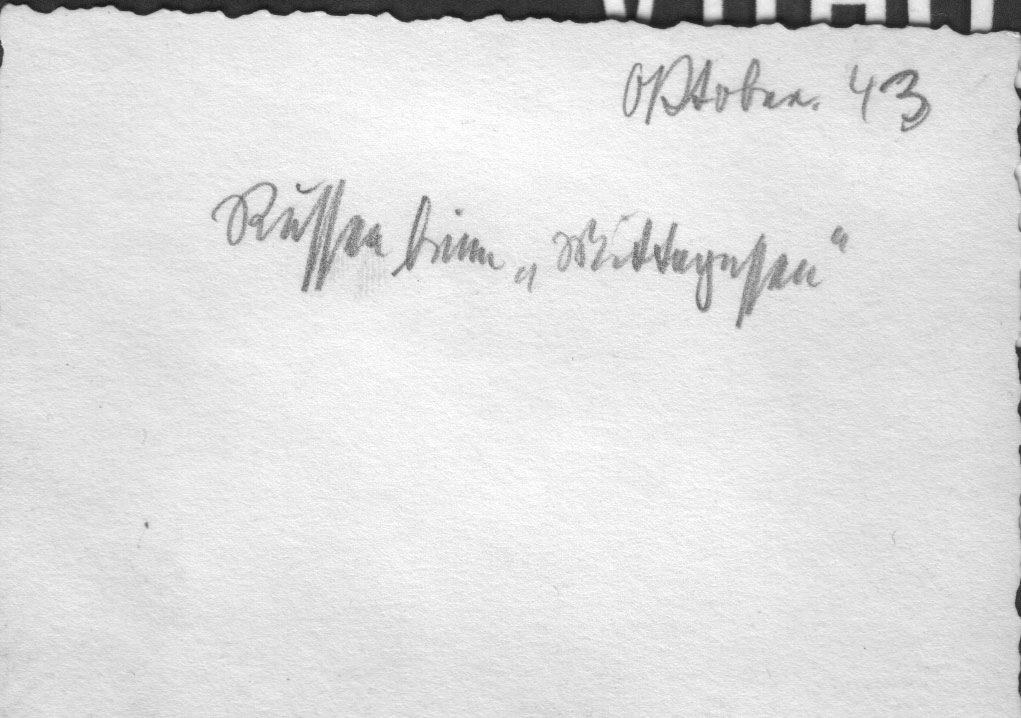 Oktober. 43
Russen beim „Mittagessen“